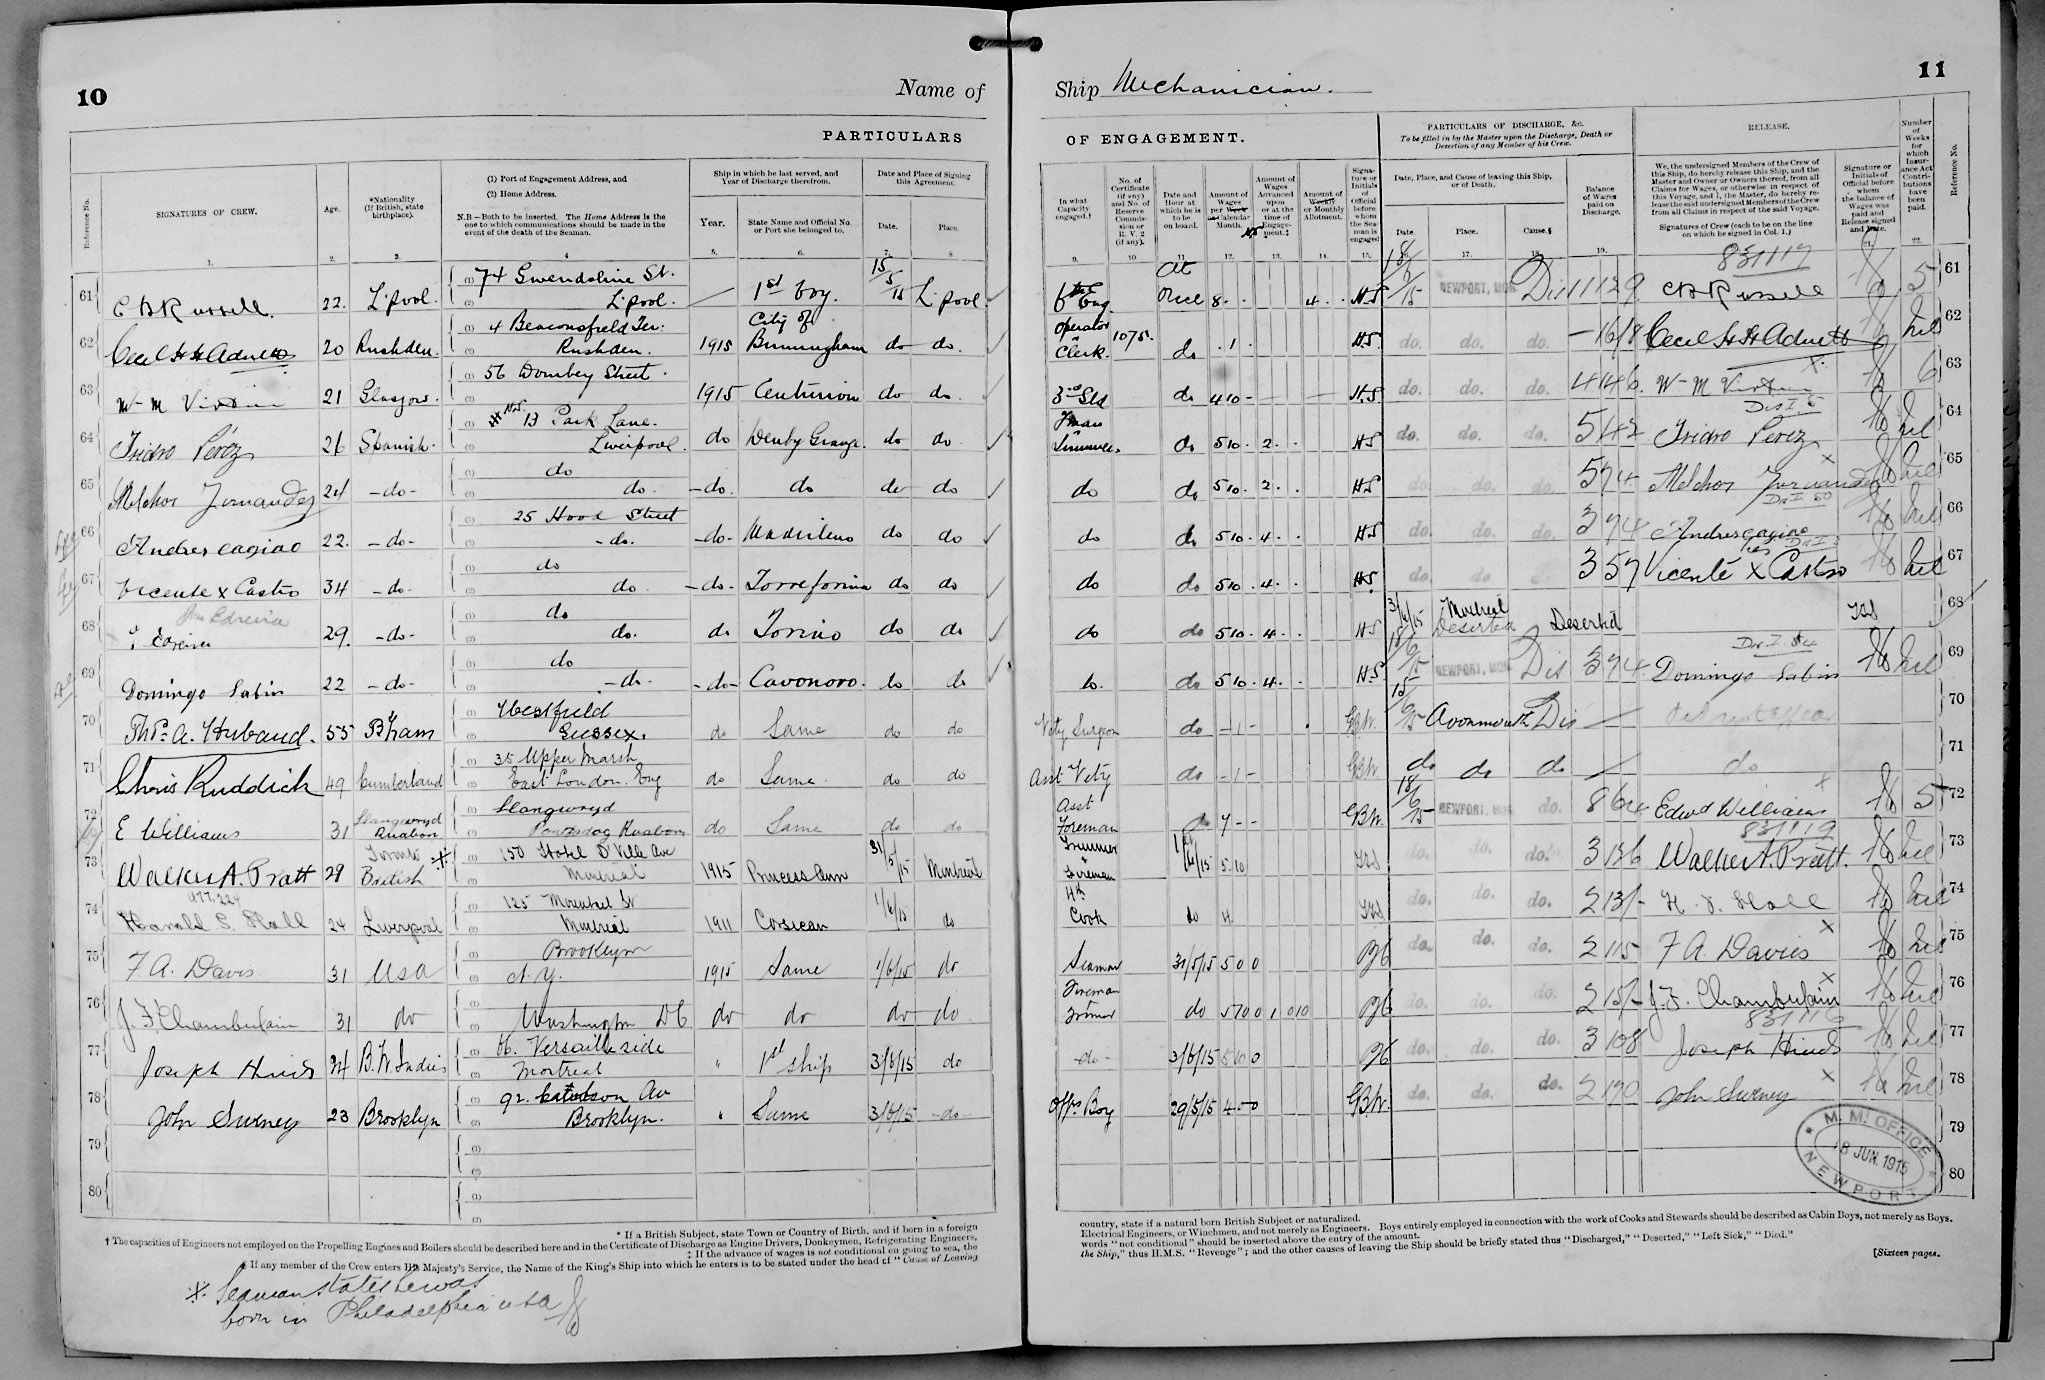 10
Name of
PARTICULARS
Reference No.
SIGNATURES OF CREW.
Age.
*Nationality
(If British, state
birthplace).
(1) Port of Engagement Address, and
(2) Home Address.
N.B.—Both to be inserted. The Home Address is the
one to which communications should be made in the
event of the death of the Seaman.
Ship in which he last served, and
Year of Discharge therefrom.
Year.
State Name and Official No.
or Port she belonged to.
Date and Place of Signing
this Agreement.
Date.
Place.
1. 2. 3. 4 5. 6. 7. 8
61 C B Russell. 22. L'pool. 74 Gwendoline St. L'pool. — 1st Voy. 15/5/15 L'pool
62 Cecil H H Adnett 20 Rushden. 4 Beaconsfield Ter. Rushden. 1915 City of Birmingham do do.
63 W M 21 Glasgow. 56 Dombey Street. 1915 Centurion do do.
64 Isidro Pérez 26 Spanish. 13 Park Lane. Liverpool. do Wenby Grange. do do.
65 Melchor Fernandez 24 -do- do do. -do. do do do
66 Andres cagiao 22. -do- 25 Hood Street -do. -do- do do
67 Vicente x Castro 34 -do- do do -do- do do
68 Edreira 29. -do- do do. do Torino do do
69 Domingo Sabin 22 -do- do -do. -do- do do
70 Thos. A. Hubaud. 55 B'ham Westfield Sussex. do Same do do
71 Chris Ruddick 49 Cumberland 35 Upper Marsh East London. Eng do Same do do
72 E Williams 31 Llangwryd Ruabon Llangwryd Ruabon do Same do do
73 Walker A. Pratt 29 Toronto British 150 Hotel D'Ville Ave Montreal 1915 Princess Ann 31/5/15 Montreal
74 Harold S. Hall 24 Liverpool 125 Montreal St Montreal 1911 Corsican 1/6/15 do
75 F A. Davis 31 USA Brooklyn N.Y. 1915 Same 1/6/15 do
76 J. F Chamberlain 31 do Washington DC do do do do
77 Joseph Hinds 24 B.W. Indies 66. Versailles side Montreal " 1st ship 3/6/15 do
78 John Surney 23 Brooklyn 92. Av Brooklyn. " Same 3/6/15 -do-
79
80
* If a British Subject, state Town or Country of Birth, and if born in a foreign
† The capacities of Engineers not employed on the Propelling Engines and Boilers should be described here and in the Certificate of Discharge as Engine Drivers, Donkeymen, Refrigerating Engineers,
‡ If the advance of wages is not conditional on going to sea, the
§ If any member of the Crew enters His Majesty's Service, the Name of the King's Ship into which he enters is to be stated under the head of "Cause of Leaving
Seaman states he was
born in Philadelphia USA
11
Ship Mechanician.
OF ENGAGEMENT.
PARTICULARS OF DISCHARGE, &c.
To be filled in by the Master upon the Discharge, Death or
Desertion of any Member of his Crew.
RELEASE.
Number
of
Weeks
for
which
Insur-
ance Act
Contri-
butions
have
been
paid.
Reference No.
In what
Capacity
engaged.†
No. of
Certificate
(if any)
and No. of
Reserve
Commis-
sion or
R. V. 2
(if any).
Date and
Hour at
which he is
to be
on board.
Amount of
Wages
per Week
or Calendar
Month.
Amount of
Wages
Advanced
upon
or at the
time of
Engage-
ment.‡
Amount of
Weekly
or Monthly
Allotment.
Signa-
ture or
Initials
of
Official
before
whom
the Sea-
man is
engaged
Date, Place, and Cause of leaving this Ship,
or of Death.
Date. Place. Cause.§
Balance
of Wages
paid on
Discharge.
We, the undersigned Members of the Crew of
this Ship, do hereby release this Ship, and the
Master and Owner or Owners thereof, from all
Claims for Wages, or otherwise in respect of
this Voyage, and I, the Master, do hereby re-
lease the said undersigned Members of the Crew
from all Claims in respect of the said Voyage.
Signatures of Crew (each to be on the line
on which he signed in Col. 1.)
Signature or
Initials of
Official before
whom
the balance of
Wages was
paid and
Release signed
and Date.
9. 10 11 12. 13. 14. 15. 16. 17. 18. 19. 21. 22.
831119
6th Eng At Once 8 . . 4 . . H.S 18/6/15 NEWPORT, MON. Dis 11 12 9 C B Russell 5 61
Operator & Clerk. 1075. do . 1 . H.S. do. do. do. - 16/8 Cecil H H Adnett nil 62
3rd Std do 4 10 - H.S do. do. do. 4 4 6 W - M 6 63
F'man & Trimmer do 5 10 . 2 . . H.S do. do. do. 5 4 2 Isidro Pérez nil 64
do do 5 10 . 2 . . H.S do. do. do. 5 7 4 Melchor Fernandez nil 65
do do 5 10 . 4 . . H.S do. do. do. 3 7 4 Andres cagiao nil 66
do do 5 10 . 4 . . H.S do. do. 3 5 7 Vicente x Castro nil 67
do do 5 10 . 4 . . H.S 3/6/15 Montreal Deserted Deserted 68
do. do 5 10 . 4 . . H.S 18/6/15 NEWPORT, MON. Dis 3 7 4 Domingo Sabin nil 69
Vety Surgeon do - 1 - GBW. 15/6/15 Avonmouth Dis — Did not appear 70
Asst Vety do - 1 - GBW do do do — do 71
Asst Foreman do 7 - - GBW. 18/6/15 NEWPORT, MON. do. Edwd Williams 5 72
831119
Trimmer & Fireman 1/6/15 5 10 do. do. do. 3 13 6 Walker A. Pratt. nil 73
4th Cook do 4 do. do. do. 2 13/- H. S. Hall nil 74
Seaman 31/5/15 5 0 0 do. do. do. 2 11 5 F A. Davis nil 75
Fireman Trimmer do 5 10 0 1 0 10 do. do. do. 2 15/- J. F. Chamberlain nil 76
-do- 3/6/15 5 10 0 do. do. do. 3 10 8 Joseph Hinds nil 77
Offrs Boy 29/5/15 4 - 0 GBW. do. do. do. 2 17 0 John Surney nil 78
79
80
M. M. OFFICE
18 JUN. 1915
NEWPORT
country, state if a natural born British Subject or naturalized.
Electrical Engineers, or Winchmen, and not merely as Engineers. Boys entirely employed in connection with the work of Cooks and Stewards should be described as Cabin Boys, not merely as Boys.
words "not conditional" should be inserted above the entry of the amount.
the Ship," thus H.M.S. "Revenge"; and the other causes of leaving the Ship should be briefly stated thus "Discharged," "Deserted," "Left Sick," "Died."
[Sixteen pages.